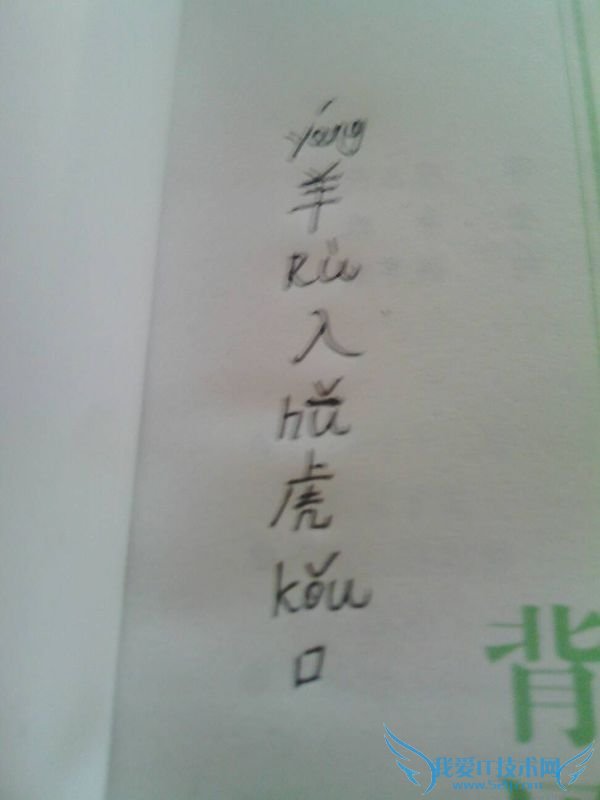 yáng
羊
Rù
入
hǔ
虎
kǒu
口
背
我爱IT技术网